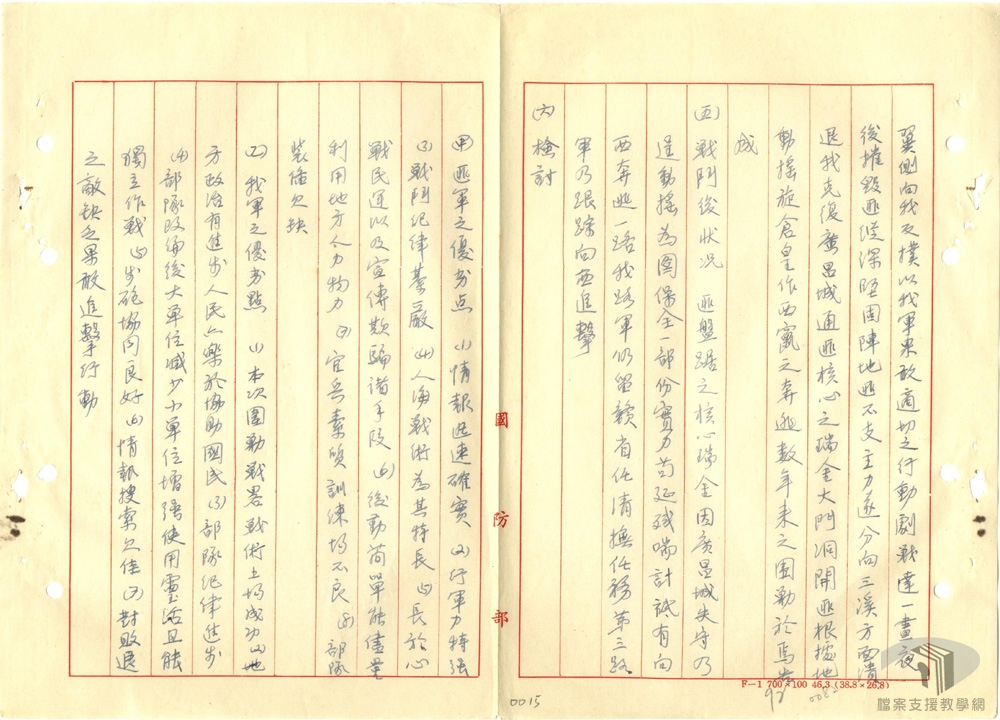 翼側向我反撲以我軍果敢適切之行動劇戰達一晝夜
後摧毀匪縱深堅固陣地匪不支主力遂分向三溪方面潰
退我克復廣昌城通匪核心之瑞金大門洞開匪根據地
動搖旋倉皇作西竄之奔逃數年來之圍勦於焉告
成
(五)戰鬥後狀況 匪盤踞之核心瑞金因廣昌城失守乃
逹動搖為圖保全一部份實力苟延殘喘計試有向
西奔逃一路我路軍仍留贛省任清撫任務第三路
軍乃跟踪向西進擊
(六)檢討
(甲)匪軍之優劣点 (1)情報迅速確實 (2)行軍力特強
(3)戰鬥紀律甚嚴 (4)人海戰術為其特長 (5)長於心
戰民運以及宣傳欺騙諸手段 (6)後勤簡單能儘量
利用地方人力物力 (7)官兵素質訓練均不良 (8)部隊
裝備欠缺
(乙)我軍之優劣點 (1)本次圍勦戰畧戰術上均成功 (2)地
方政治有進步人民亦樂於協助國民 (3)部隊紀律進步
(4)部隊改編後大單位減少小單位增強使用靈活且能
獨立作戰 (5)步砲協同良好 (6)情報搜索欠佳 (7)對敗退
之敵缺乏果敢進擊行動
國防部
F—1 700×100 46.3 (38.8×26.8)
92
0015
檔案支援教學網